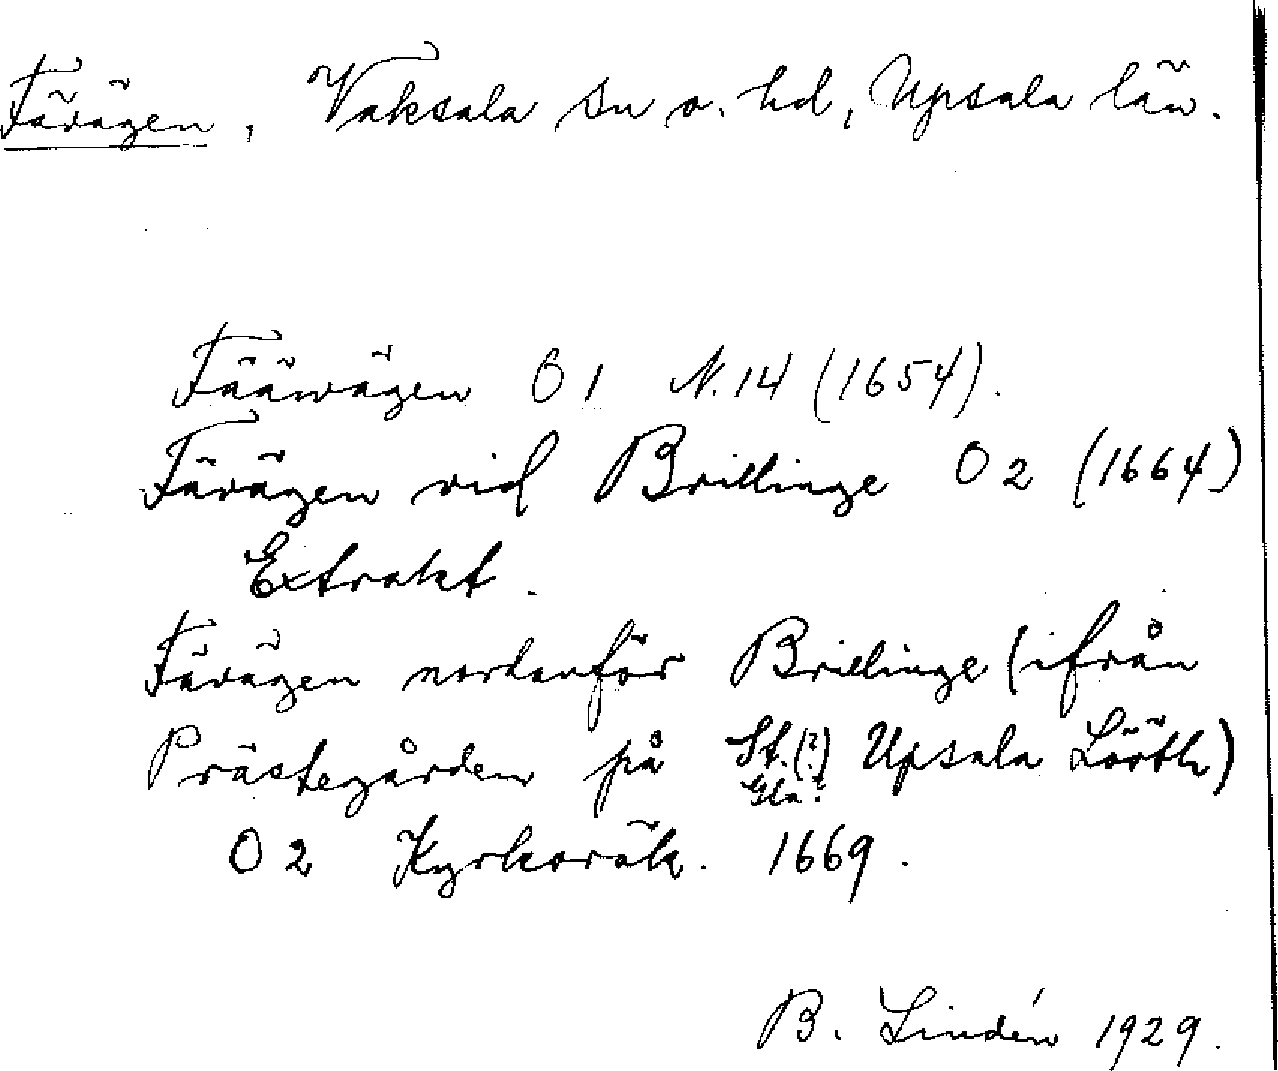 Fävägen, Vaksala sn o. hd, Upsala län.
Fääwägen Ö 1 N. 14 (1654).
Fävägen vid Brillinge O 2 (1664)
Extrakt.
Fävägen nordanför Brillinge (ifrån
Prästegården på St.(?) Upsala Lööth)
Gla?
O 2 Kyrkoräk. 1669.
B. Lindén 1929.